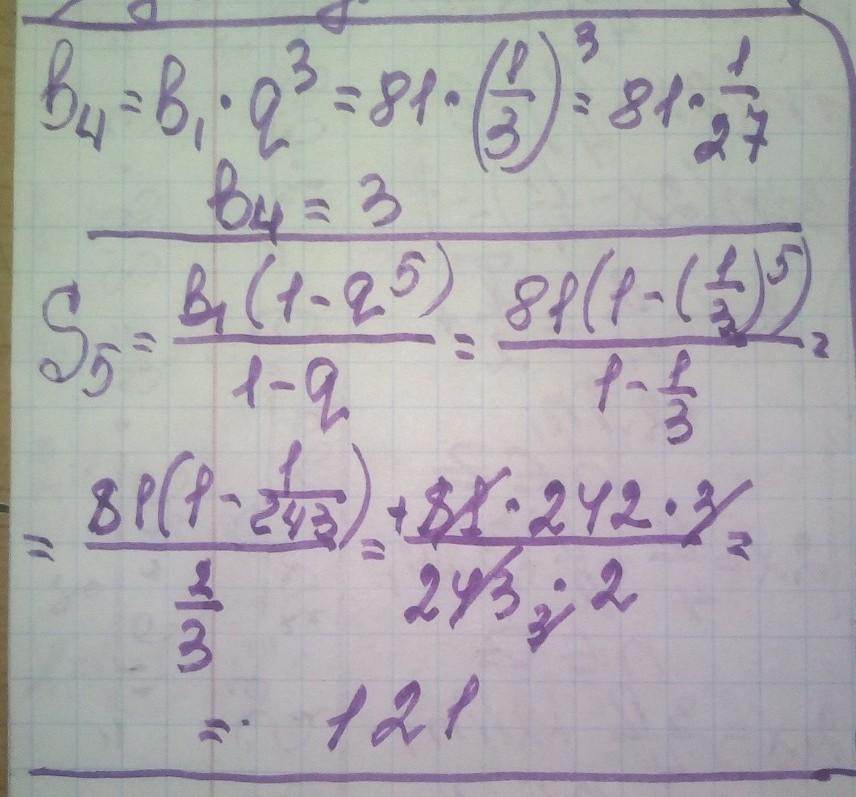 b₄ = b₁ · q³ = 81 · (1/3)³ = 81 · 1/27
b₄ = 3
S₅ = b₁(1 - q⁵)/(1 - q) = 81(1 - (1/3)⁵)/(1 - 1/3) =
= 81(1 - 1/243)/(2/3) = + 81 · 242 · 3/(243 ₃ · 2) =
= 121